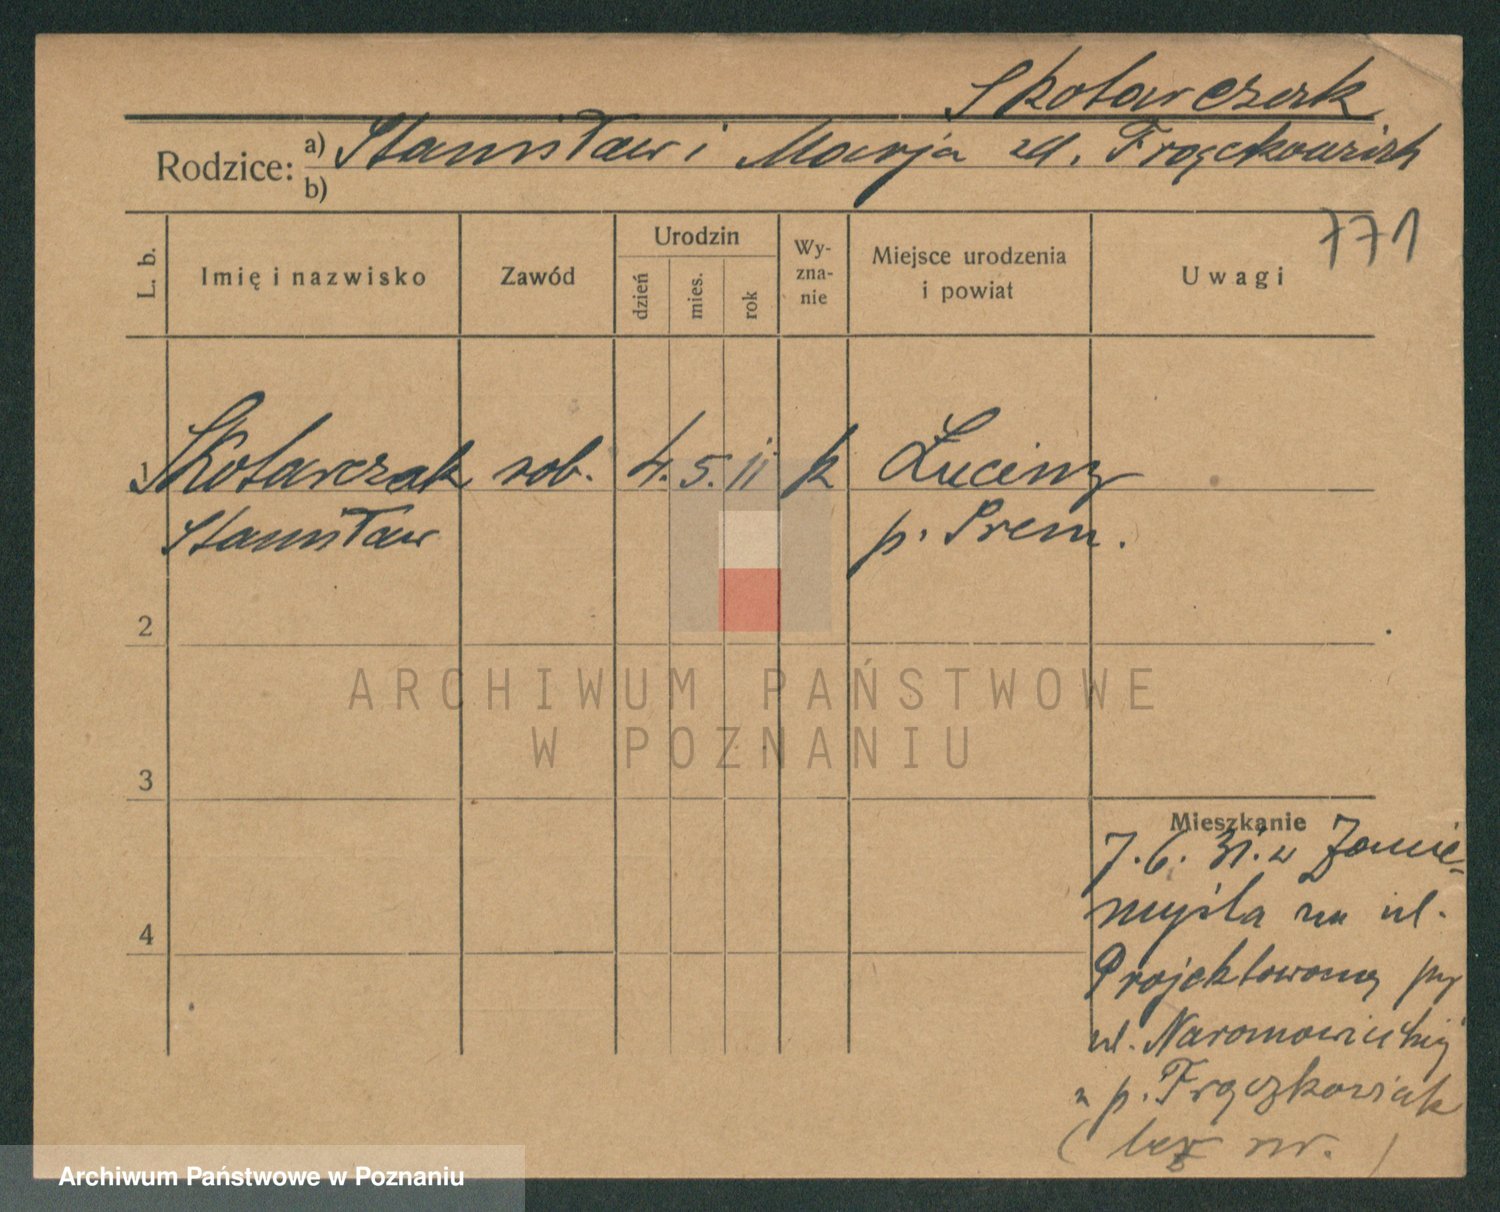 Skotarczak
Rodzice: a) Stanisław i Marja zd. Frąckowiak
b)
771
L. b.
Imię i nazwisko
Zawód
Urodzin
dzień
mies.
rok
Wy-
zna-
nie
Miejsce urodzenia
i powiat
Uwagi
1 Skotarczak rob. 4. 5. 11 k Luciny
Stanisław p. Śrem.
2
3
4
Mieszkanie
7. 6. 31. z Zanie-
myśla na ul.
Projektowaną przy
ul. Naramowickiej
u p. Frączkowiak
(bez nr.)
ARCHIWUM PAŃSTWOWE
W POZNANIU
Archiwum Państwowe w Poznaniu